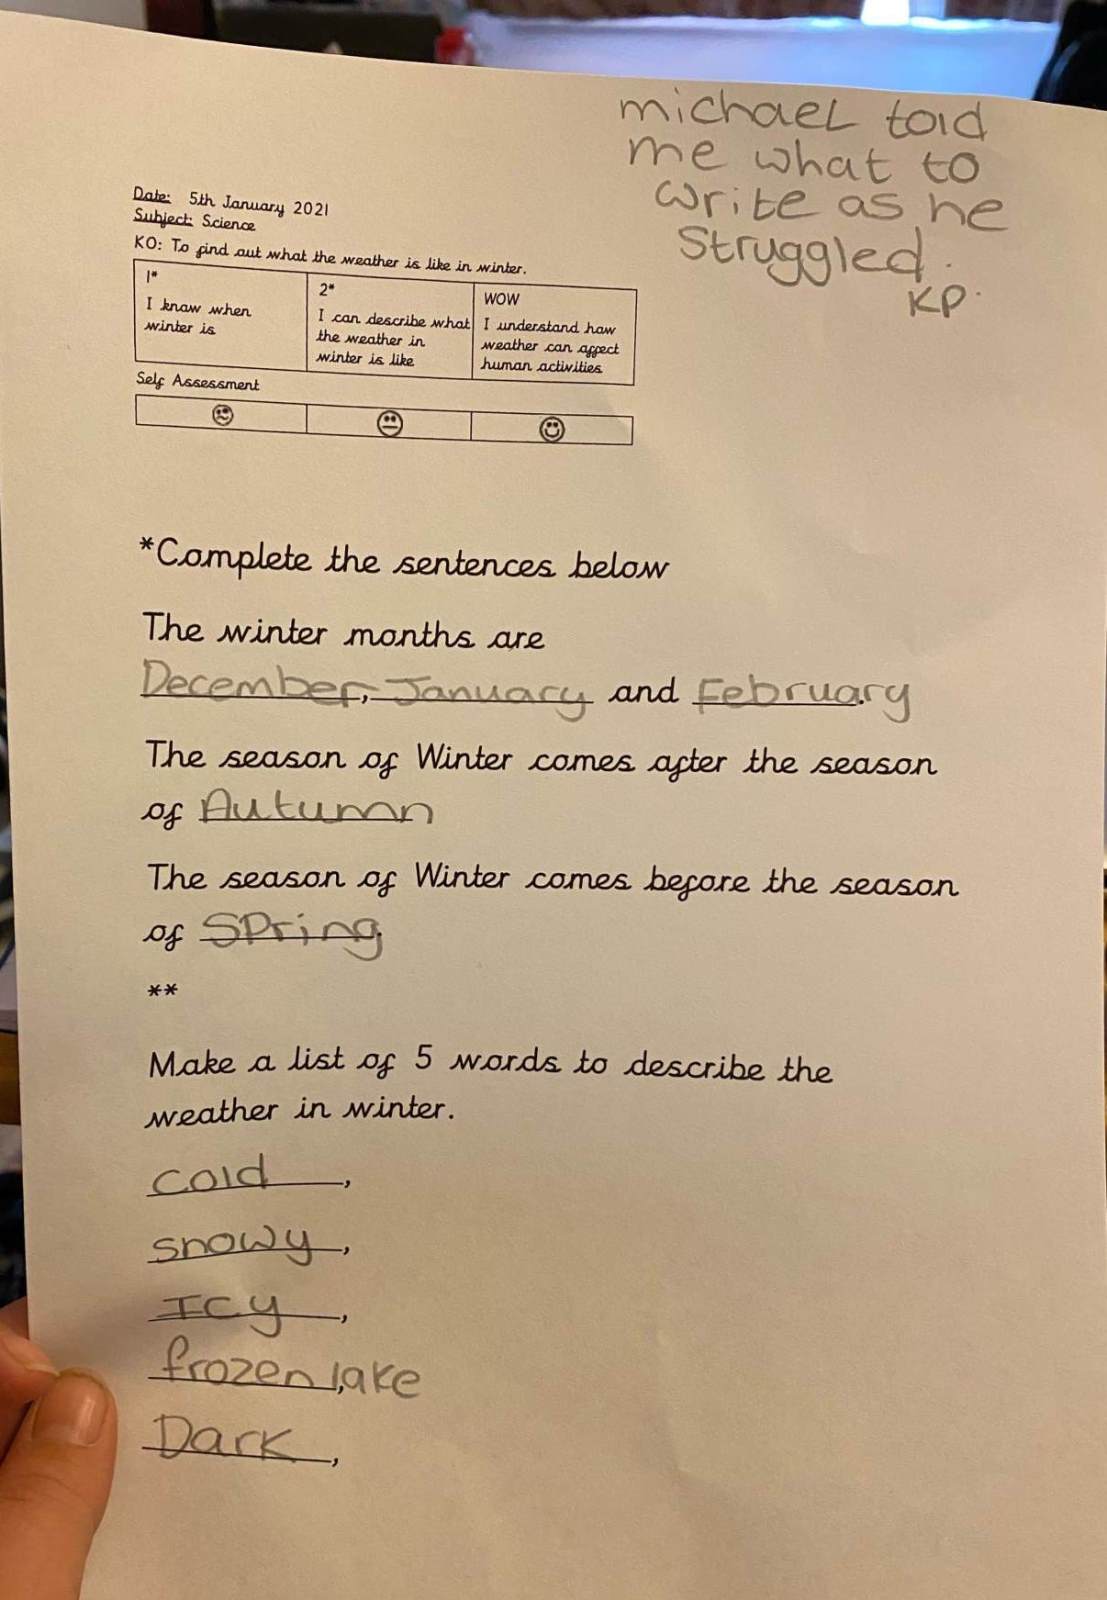 michaeL told
me what to
write as he
Struggled.
KP.
Date: 5th January 2021
Subject: Science
KO: To find out what the weather is like in winter.
1*
I know when
winter is
2*
I can describe what
the weather in
winter is like
WOW
I understand how
weather can affect
human activities
Self Assessment
*Complete the sentences below
The winter months are
December, January and February.
The season of Winter comes after the season
of Autumn
The season of Winter comes before the season
of Spring
**
Make a list of 5 words to describe the
weather in winter.
cold,
snowy,
Icy,
frozen lake,
Dark,